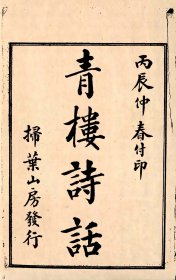 丙辰仲春付印
青樓詩話
掃葉山房發行